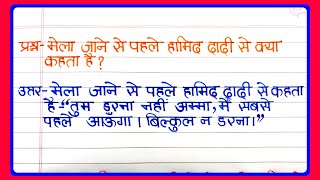 प्रश्न- मेला जाने से पहले हामिद दादी से क्या
कहता है ?
उत्तर- मेला जाने से पहले हामिद दादी से कहता
है-"तुम डरना नहीं अम्मा, मैं सबसे
पहले आऊँगा। बिल्कुल न डरना।"